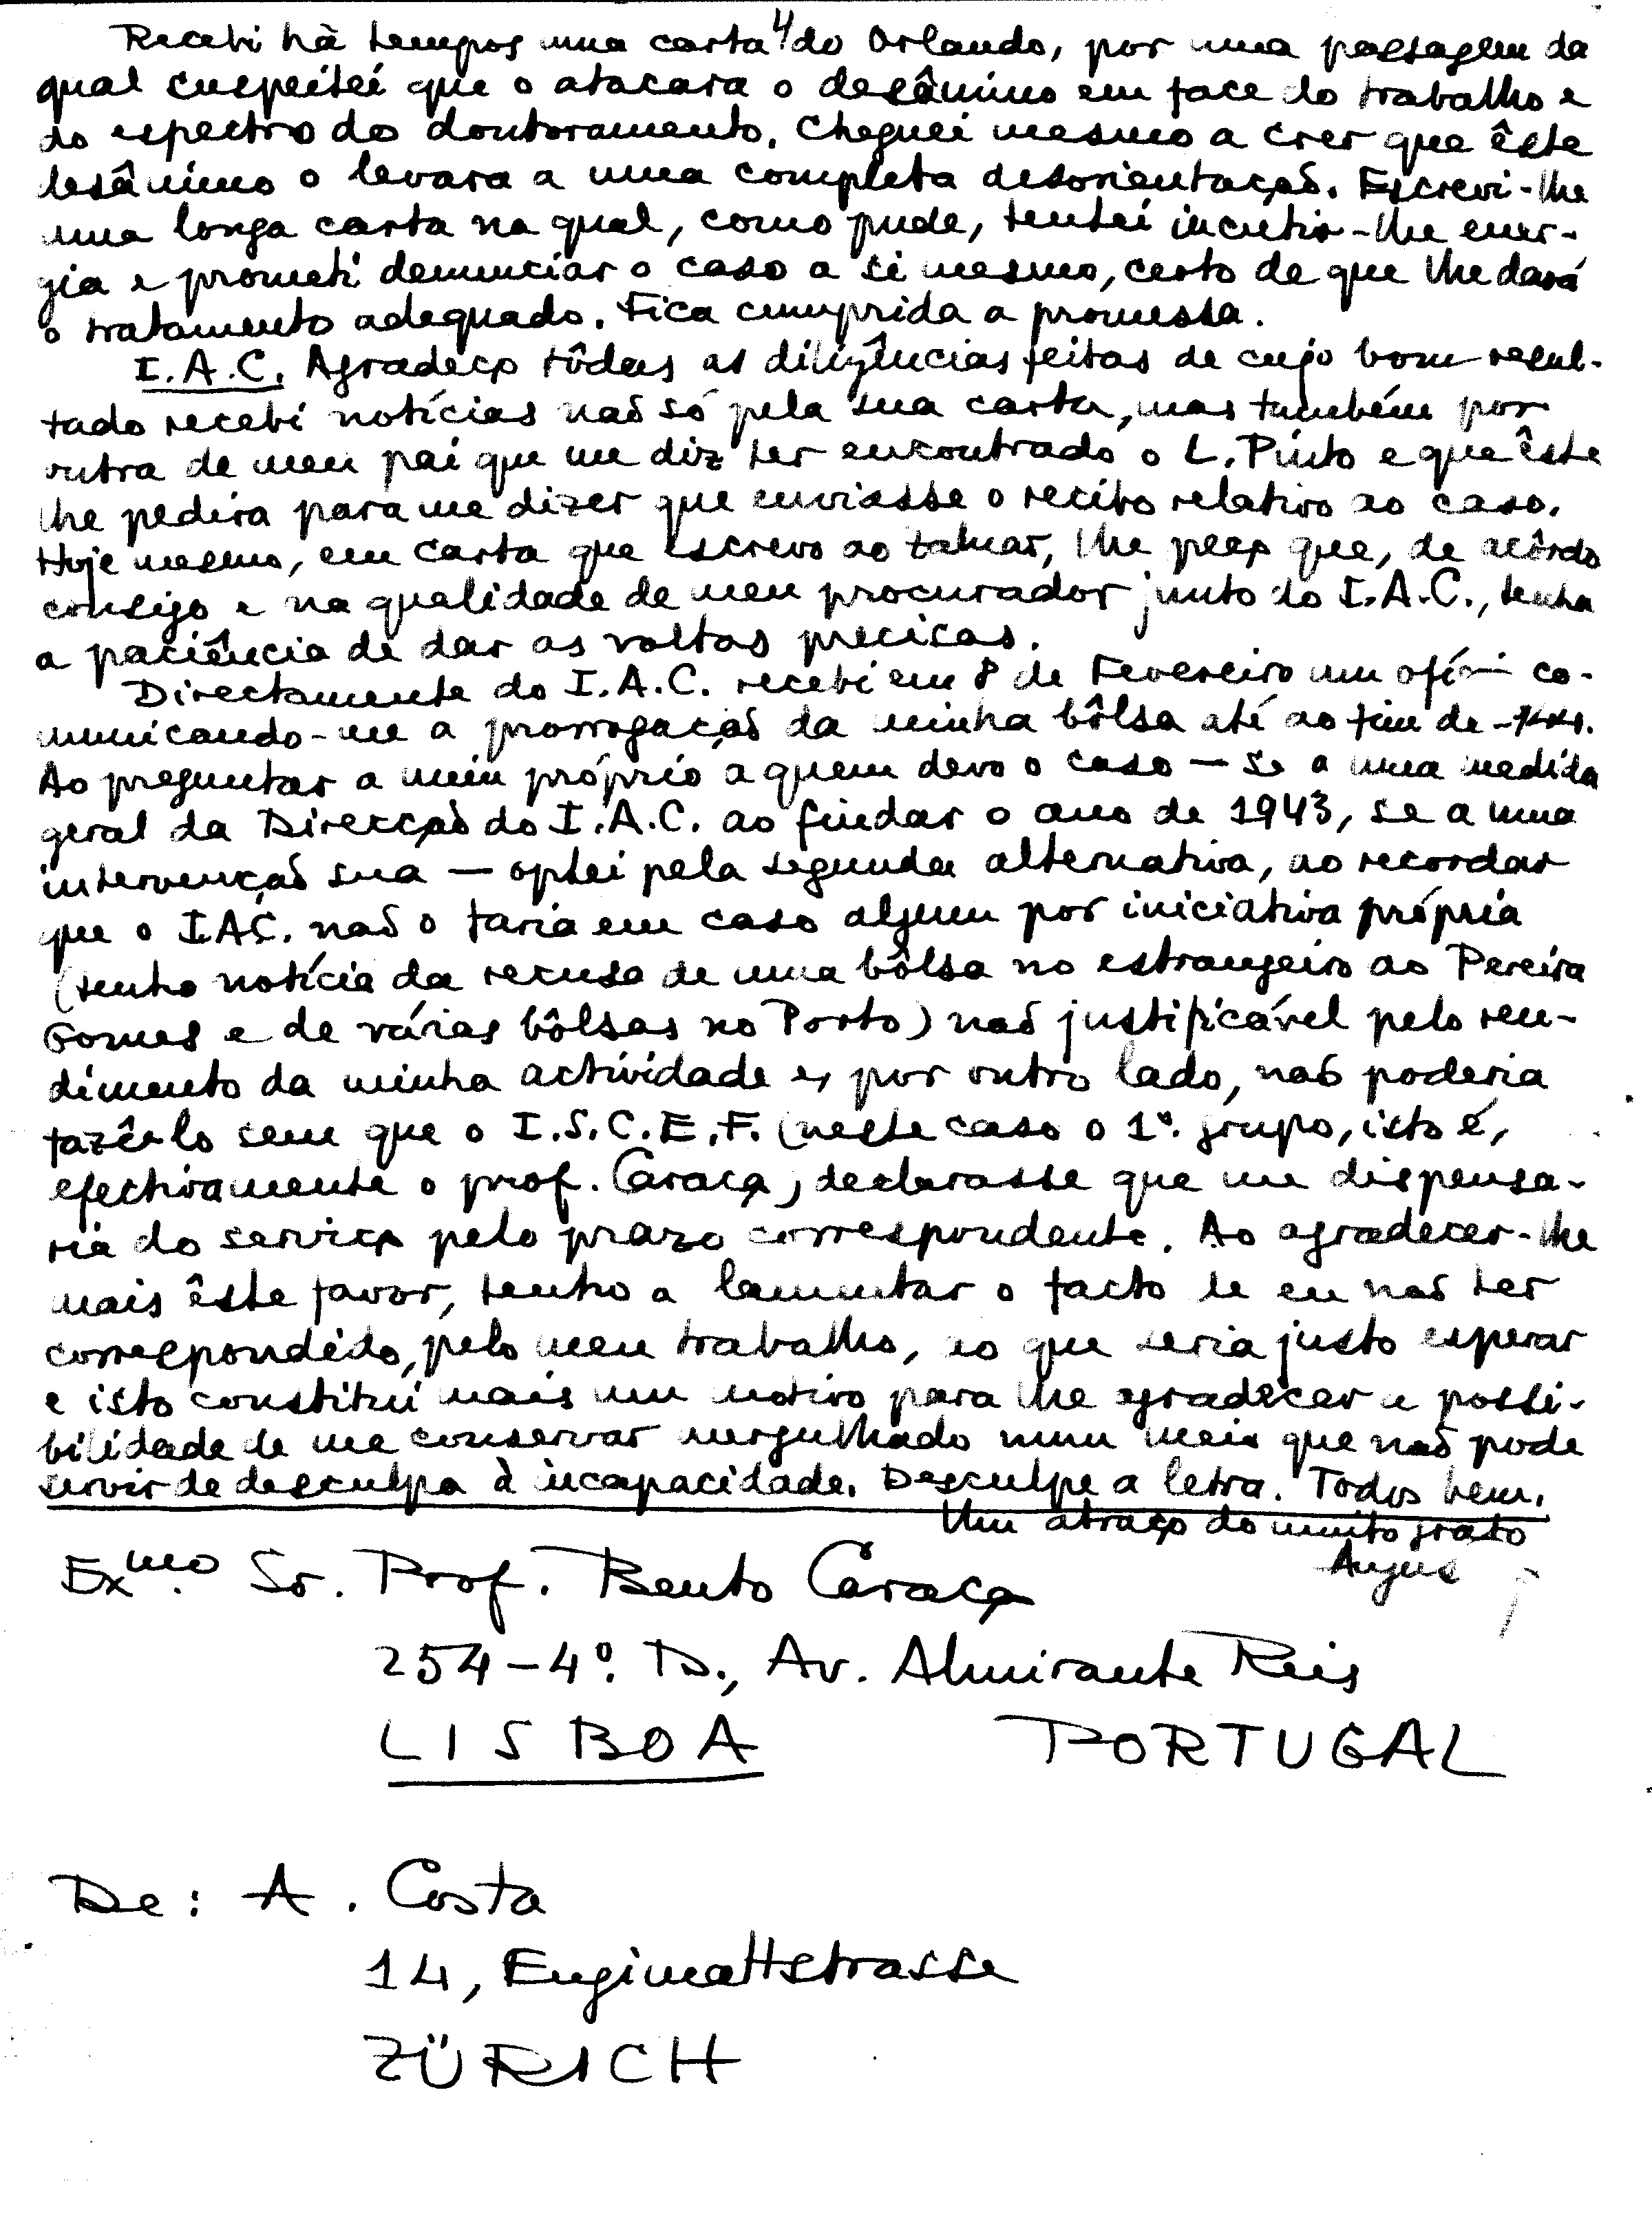 Recebi há tempos uma carta 4/ do Orlando, por uma passagem da
qual suspeitei que o atacara o desânimo em face do trabalho e
do espectro do doutoramento. Cheguei mesmo a crer que êste
desânimo o levara a uma completa desorientação. Escrevi-lhe
uma longa carta na qual, como pude, tentei incutir-lhe ener-
gia e prometi denunciar o caso a si mesmo, certo de que lhe dará
o tratamento adequado. Fica cumprida a promessa.
I.A.C. Agradeço tôdas as diligências feitas de cujo bom resul-
tado recebi notícias não só pela sua carta, mas também por
outra de meu pai que me diz ter encontrado o L. Pinto e que êste
lhe pedira para me dizer que enviasse o recibo relativo ao caso.
Hoje mesmo, em carta que escrevo ao , lhe peço que, de acôrdo
consigo e na qualidade de meu procurador junto do I.A.C., tenha
a paciência de dar as voltas precisas.
Directamente do I.A.C. recebi em 8 de Fevereiro um ofício co-
municando-me a prorrogação da minha bôlsa até ao fim de
Ao preguntar a mim próprio a quem devo o caso — se a uma medida
geral da Direcção do I.A.C. ao findar o ano de 1943, se a uma
intervenção sua — optei pela segunda alternativa, ao recordar
que o IAC. não o faria em caso algum por iniciativa própria
(tenho notícia da recusa de uma bôlsa no estrangeiro ao Pereira
Gomes e de várias bôlsas no Porto) não justificável pelo ren-
dimento da minha actividade e, por outro lado, não poderia
fazê-lo sem que o I.S.C.E.F. (neste caso o 1º. grupo, isto é,
efectivamente o prof. Caraça) declarasse que me dispensa-
ria do serviço pelo prazo correspondente. Ao agradecer-lhe
mais êste favor, tenho a lamentar o facto de eu não ter
correspondido, pelo meu trabalho, ao que seria justo esperar
e isto constitui mais um motivo para lhe agradecer a possi-
bilidade de me conservar mergulhado num meio que não pode
servir de desculpa à incapacidade. Desculpe a letra. Todos bem.
Um abraço do muito grato
Exmo. Sr. Prof. Bento Caraça
254-4º. D., Av. Almirante Reis
LISBOA PORTUGAL
De: A. Costa
14, Engimattstrasse
ZÜRICH